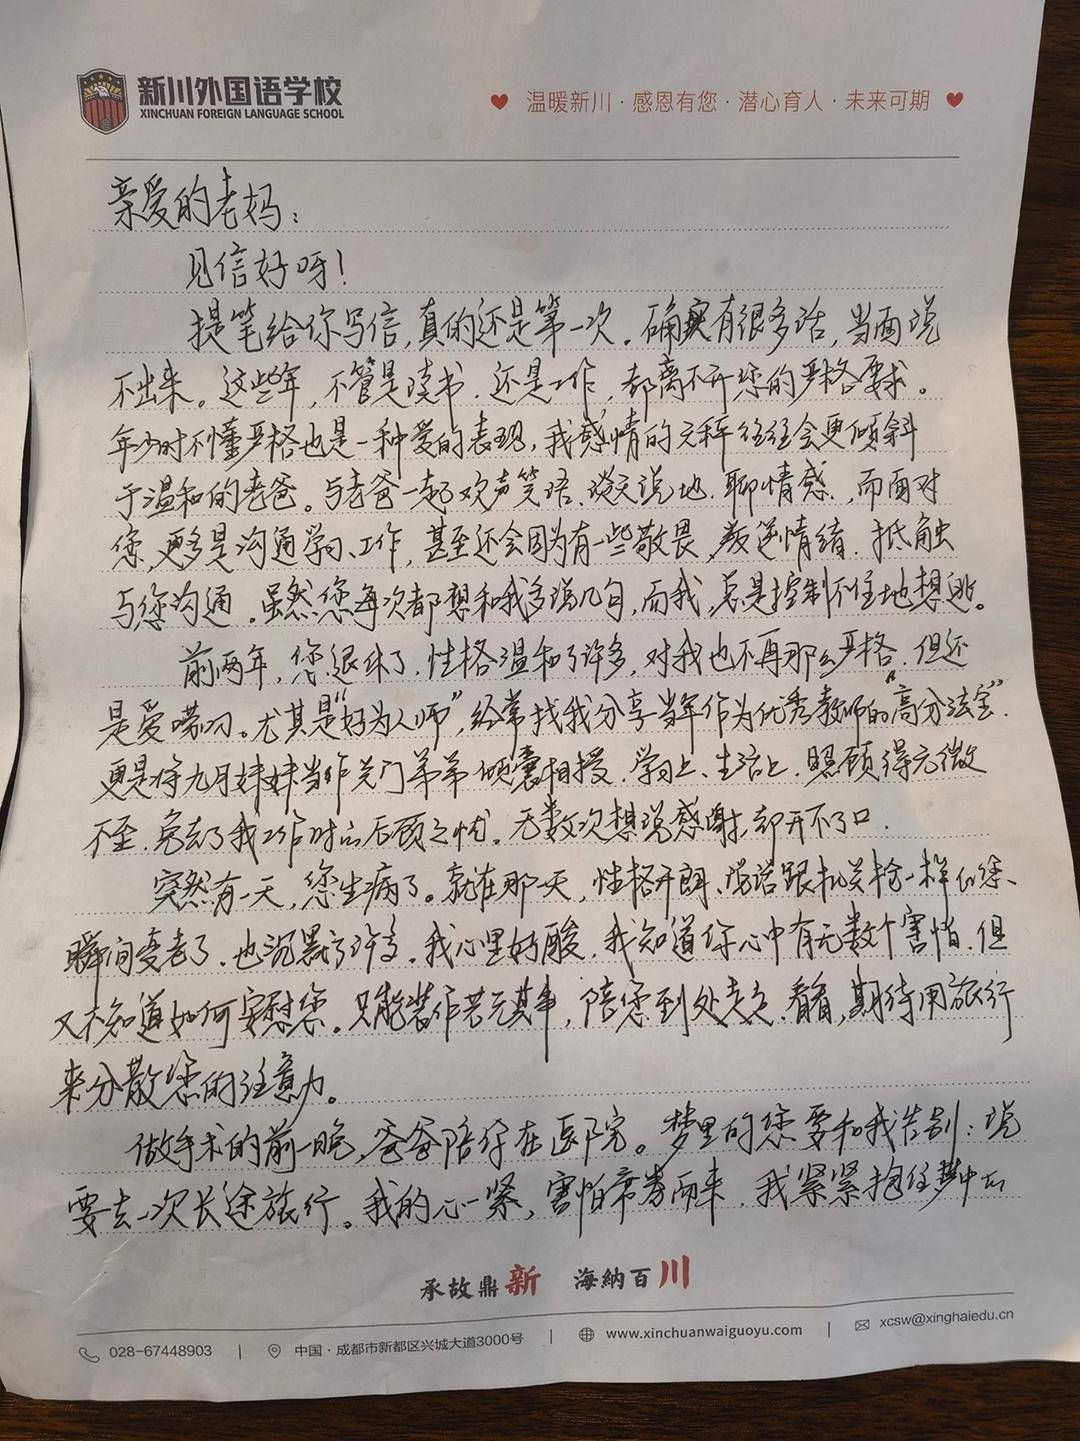 新川外国语学校
XINCHUAN FOREIGN LANGUAGE SCHOOL
温暖新川·感恩有您·潜心育人·未来可期
亲爱的老妈：
见信好呀！
提笔给你写信，真的还是第一次。确实有很多话，当面说
不出来。这些年，不管是读书，还是工作，都离不开您的严格要求。
年少时不懂严格也是一种爱的表现，我感情的天秤往往会更倾斜
于温和的老爸。与老爸一起欢声笑语、谈天说地、聊情感，而面对
您，更多是沟通学习、工作，甚至还会因为有一些敬畏、叛逆情绪，抵触
与您沟通。虽然您每次都想和我多说几句，而我，总是控制不住地想逃。
前两年，您退休了，性格温和了许多，对我也不再那么严格，但还
是爱唠叨。尤其是“好为人师”，经常找我分享当年作为优秀教师的“高分法宝”，
更是将九月妹妹当作关门弟弟倾囊相授，学习上、生活上，照顾得无微
不至，免去了我工作时的后顾之忧。无数次想说感谢，却开不了口。
突然有一天，您生病了。就在那一天，性格开朗、说话跟机关枪一样的您、
瞬间变老了，也沉默了许多。我心里好酸，我知道你心中有无数个害怕，但
又不知道如何安慰您。只能装作若无其事，陪您到处走走、看看，期待用旅行
来分散您的注意力。
做手术的前一晚，爸爸陪你在医院。梦里的您要和我告别：说
要去一次长途旅行。我的心一紧，害怕席卷而来，我紧紧抱住梦中的
承故鼎新 海納百川
028-67448903 | 中国·成都市新都区兴城大道3000号 | www.xinchuanwaiguoyu.com | xcsw@xinghaiedu.cn